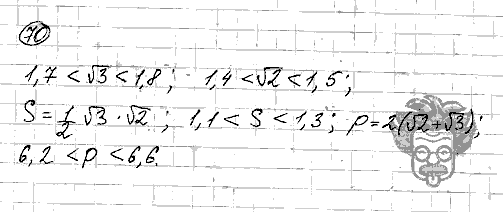 70
1,7 < √3 < 1,8; 1,4 < √2 < 1,5;
S = 1/2 √3 · √2; 1,1 < S < 1,3; p = 2(√2 + √3);
6,2 < p < 6,6.